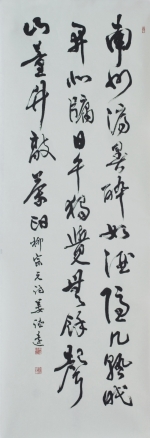 南州溽暑醉如酒隐几熟眠
开北牖日午独觉无馀声
山童隔竹敲茶臼柳宗元诗姜法莲